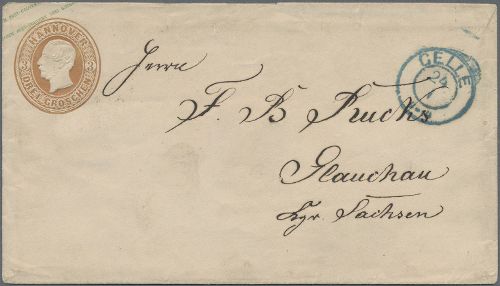 HANNOVER
DREI GROSCHEN
CELLE
24
Herrn
F. B. Ruck
Glauchau
Kgr. Sachsen